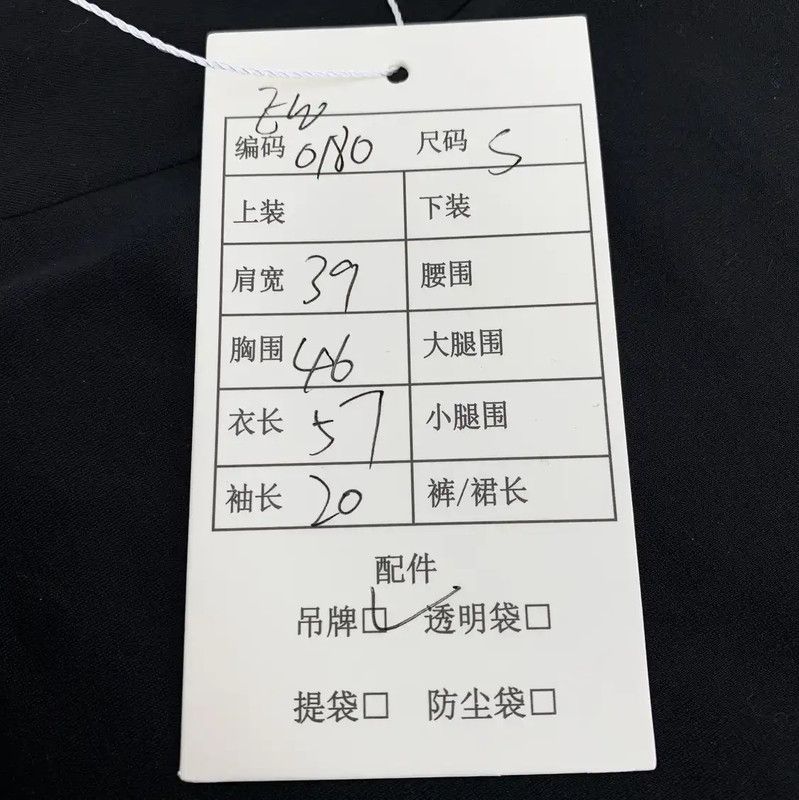 ZW
编码 0180 尺码 S
上装 下装
肩宽 39 腰围
胸围 46 大腿围
衣长 57 小腿围
袖长 20 裤/裙长
配件
吊牌☑ 透明袋□
提袋□ 防尘袋□